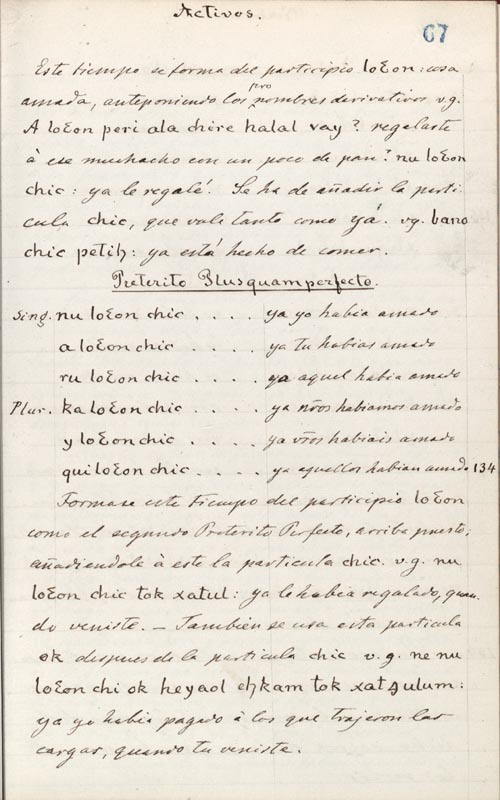 Activos.
67
Este tiempo se forma del participio loƐon: cosa
amada, anteponiendo los pronombres derivativos v.g.
A loƐon peri ala chire halal vay? regalaste
à ese muchacho con un poco de pan? nu loƐon
chic: ya le regalé. Se ha de añadir la parti-
cula chic, que vale tanto como yá. vg. bano
chic petiꜧ: ya está hecho de comer.
Preterito Plusquamperfecto.
Sing. nu loƐon chic . . . . ya yo habia amado
a loƐon chic . . . . ya tu habias amado
ru loƐon chic . . . . ya aquel habia amado
Plur. ka loƐon chic . . . . ya nr̃os habiamos amado
y loƐon chic . . . . ya vr̃os habiais amado
qui loƐon chic . . . . ya aquellos habian amado 134
Formase este tiempo del participio loƐon
como el segundo Preterito Perfecto, arriba puesto;
añadiendole à este la particula chic. v.g. nu
loƐon chic tok xatul: ya lo habia regalado, quan-
do veniste. — Tambien se usa esta particula
ok despues de la particula chic v.g. ne nu
loƐon chi ok heyaol cꜧkam tok xatꜫulum:
ya yo habia pagado à los que trajeron las
cargas, quando tu veniste.